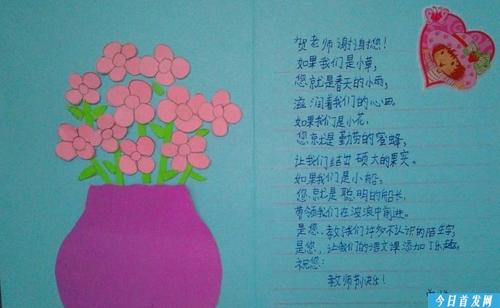 贺老师谢谢您！
如果我们是小草，
您就是春天的小雨，
滋润着我们的心田。
如果我们是小花，
您就是勤劳的蜜蜂，
让我们结出硕大的果实。
如果我们是小船，
您就是聪明的船长，
带领我们在波浪中前进。
是您，教我们许多不认识的陌生字，
是您，让我们的语文课添加了乐趣。
祝您：
教师节快乐！
今日首发网